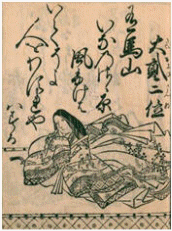 大貳三位
有馬山
いなのさゝ原
風ふけは
いてそよ
人をわすれや
はする